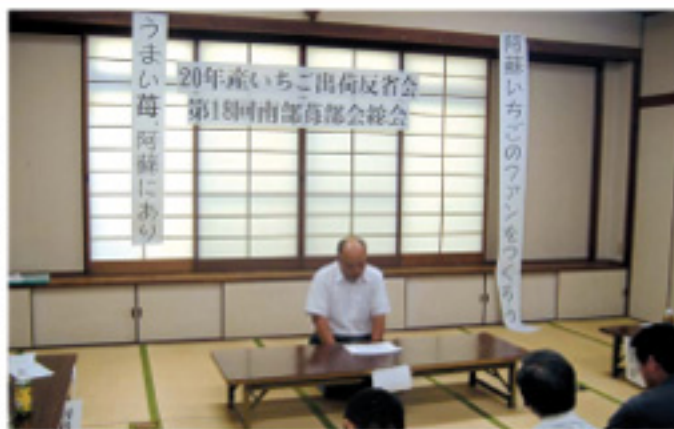 うまい苺、阿蘇にあり
20年産いちご出荷反省会
第18回南部苺部会総会
阿蘇いちごのファンをつくろう